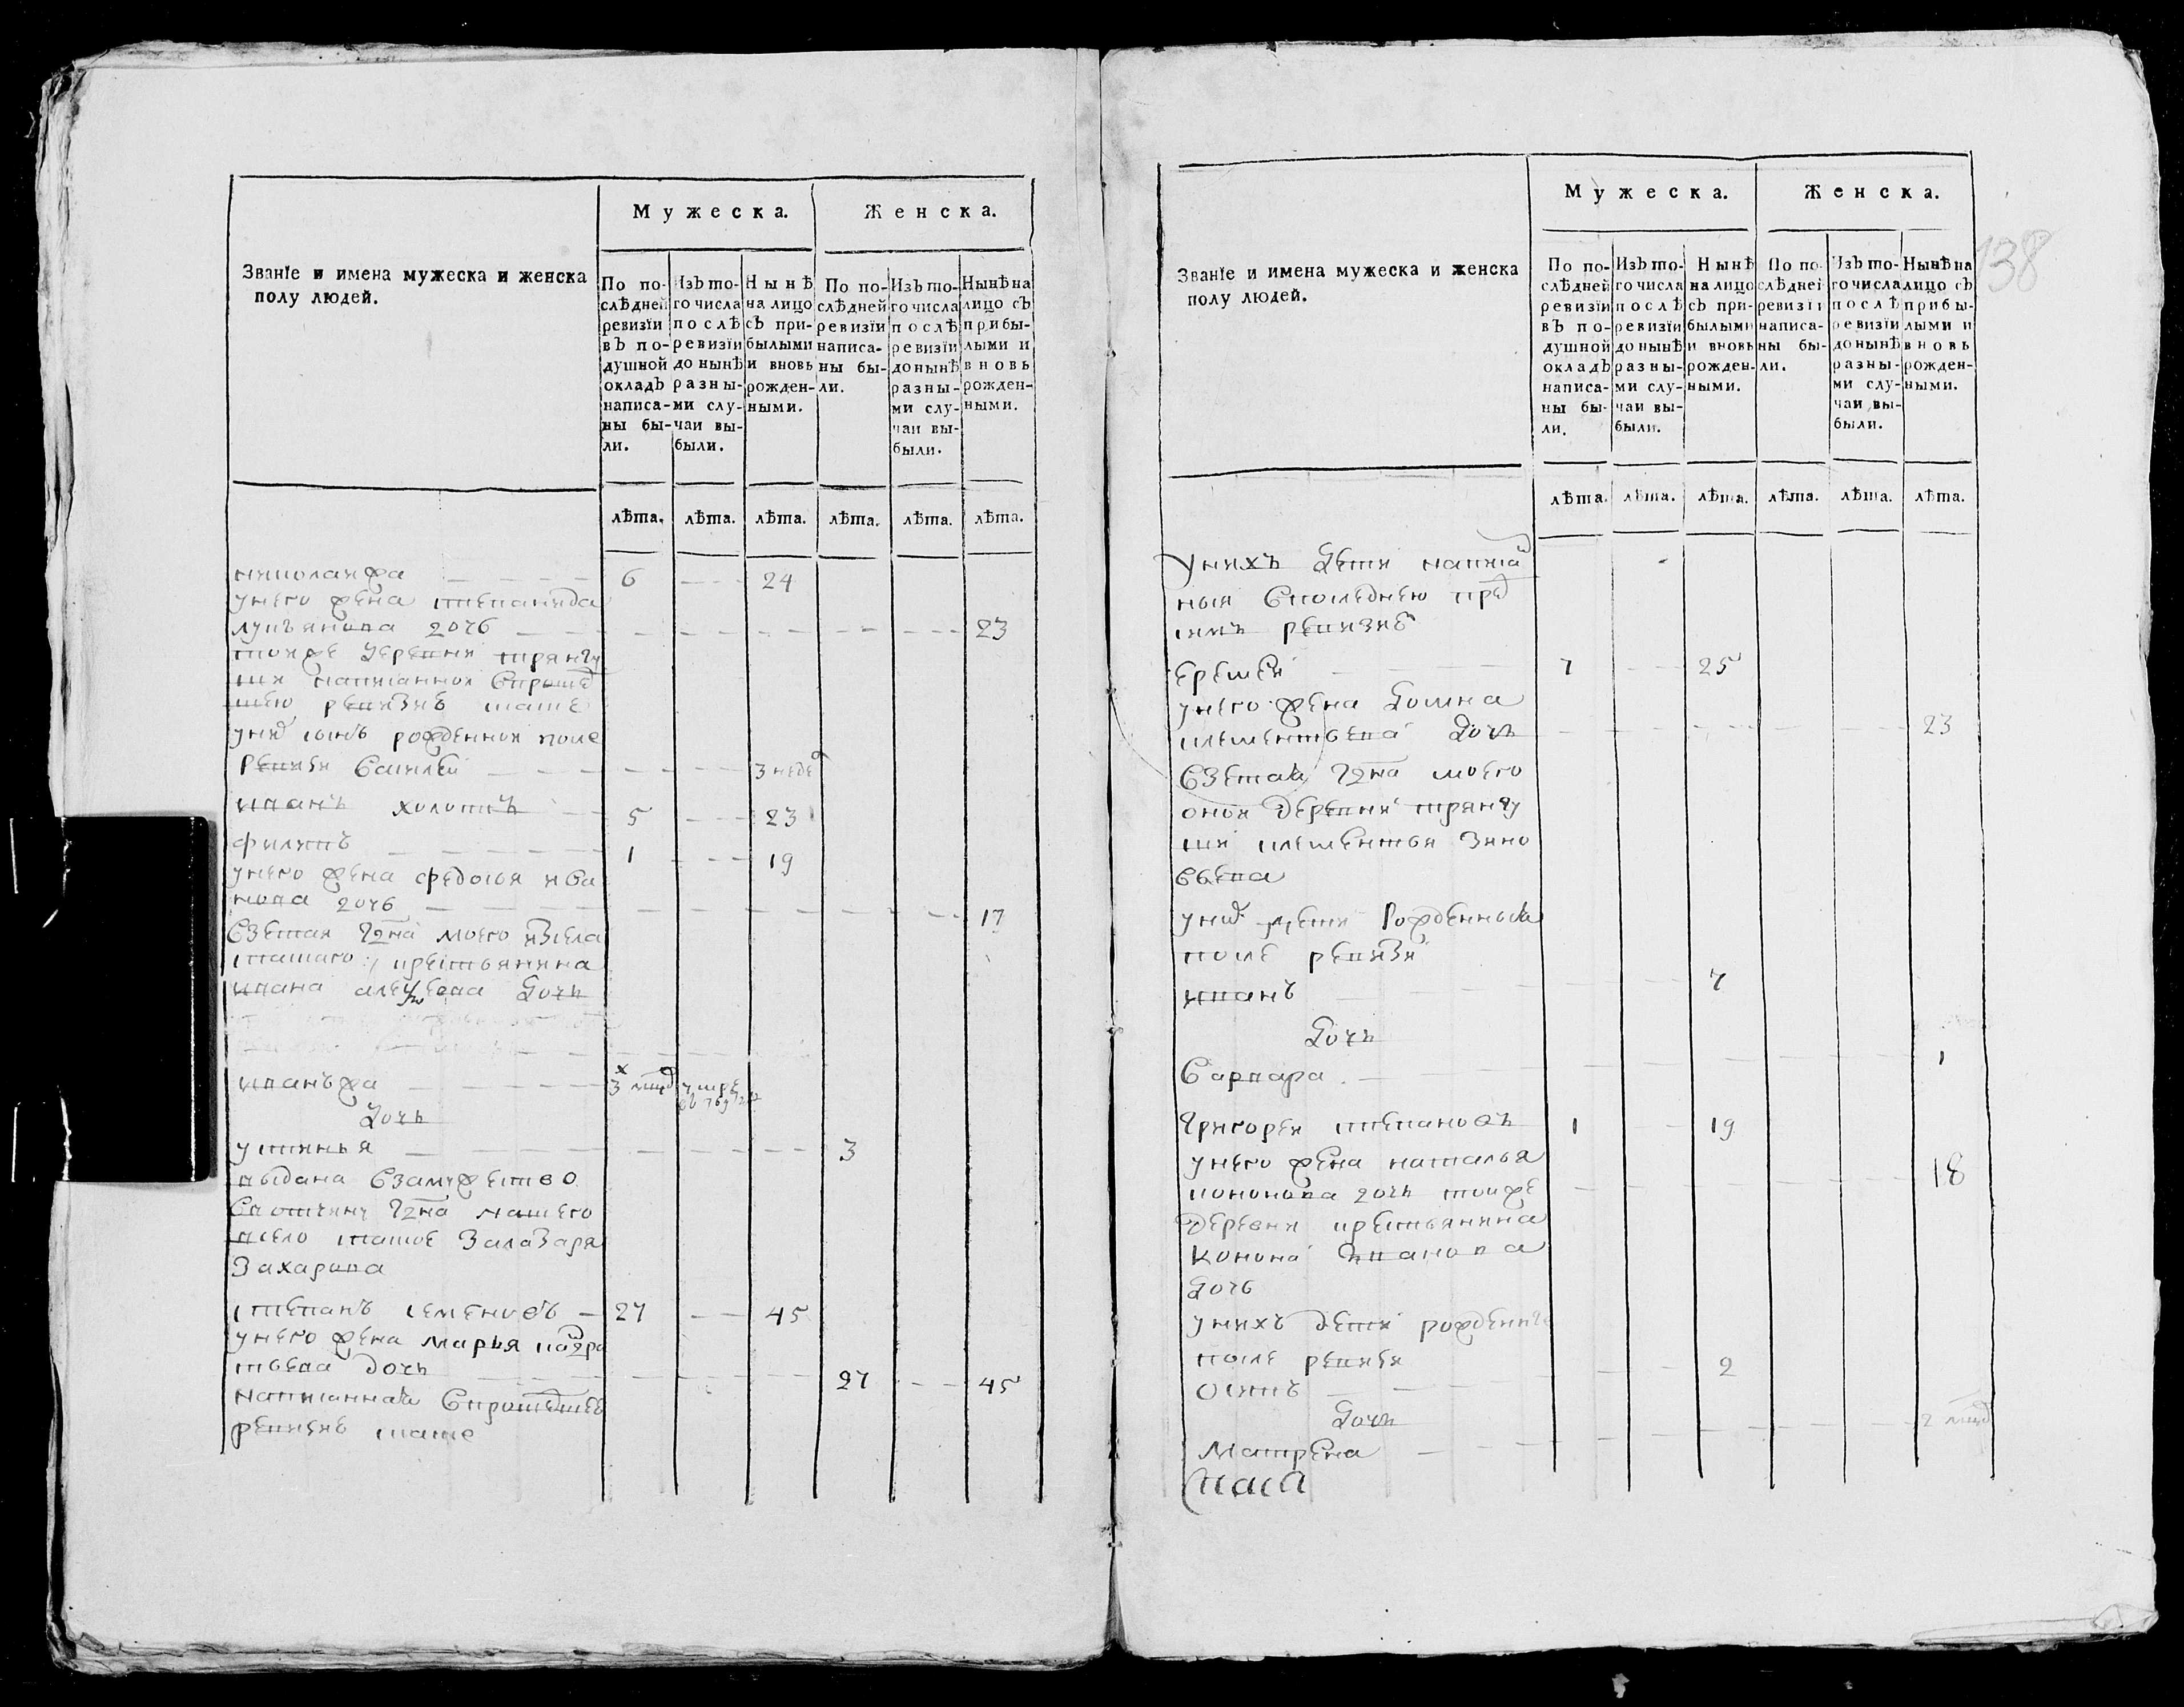 Званїе и имена мужеска и женска
полу людей.
Мужеска.
Женска.
По по-
слѣдней
ревизїи
въ по-
душной
окладъ
написа-
ны бы-
ли.
Изъ то-
го числа
послѣ
ревизїи
до нынѣ
разны-
ми слу-
чаи вы-
были.
Нынѣ
на лицо
съ при-
былыми
и вновь
рожден-
ными.
По по-
слѣдней
ревизїи
написа-
ны бы-
ли.
Изъ то-
го числа
послѣ
ревизїи
до нынѣ
разны-
ми слу-
чаи вы-
были.
Нынѣ на
лицо съ
прибы-
лыми и
вновь
рожден-
ными.
лѣта. лѣта. лѣта. лѣта. лѣта. лѣта.
6 24
унего жена степанида
лукъянова дочь 23
тоиже деревни
написанной
ревизиѣ
сынъ рожденной после
ревизи василеи 3 неде
иванъ холостъ 5 23
филипъ 1 19
унего жена федосья ива
нова дочь 17
взетая гдна моего изсела
крестьянина
ивана дочь
иванъже 3
дочь
устинья 3
выдана взамужество
вотчину гдна нашего
всело залазаря
захарова
степанъ семеновъ 27 45
унего жена марья
дочь 27 45
написанная впрошедшеи
ревизиѣ
138
Званїе и имена мужеска и женска
полу людей.
Мужеска.
Женска.
По по-
слѣдней
ревизїи
въ по-
душной
окладъ
написа-
ны бы-
ли.
Изъ то-
го числа
послѣ
ревизїи
до нынѣ
разны-
ми слу-
чаи вы-
были.
Нынѣ
на лицо
съ при-
былыми
и вновь
рожден-
ными.
По по-
слѣдней
ревизїи
написа-
ны бы-
ли.
Изъ то-
го числа
послѣ
ревизїи
до нынѣ
разны-
ми слу-
чаи вы-
были.
Нынѣ на
лицо съ
прибы-
лыми и
вновь
рожден-
ными.
лѣта. лѣта. лѣта. лѣта. лѣта. лѣта.
унихъ дети написа
ныя впоследнею пред
симъ ревизиѣ
еремеи 7 25
унего жена домна
клементьева дочь 23
взетая гдна моего
оной деревни
клементья зино
вьева
дети рожденныя
после ревизи
иванъ 7
дочь
варвара 1
григореи степановъ 1 19
унего жена наталья
кононова дочь тоиже 18
деревни крестьянина
конона иванова
дочь
унихъ дети рожденны
после ревизи
осипъ 2
дочь
матрена 2